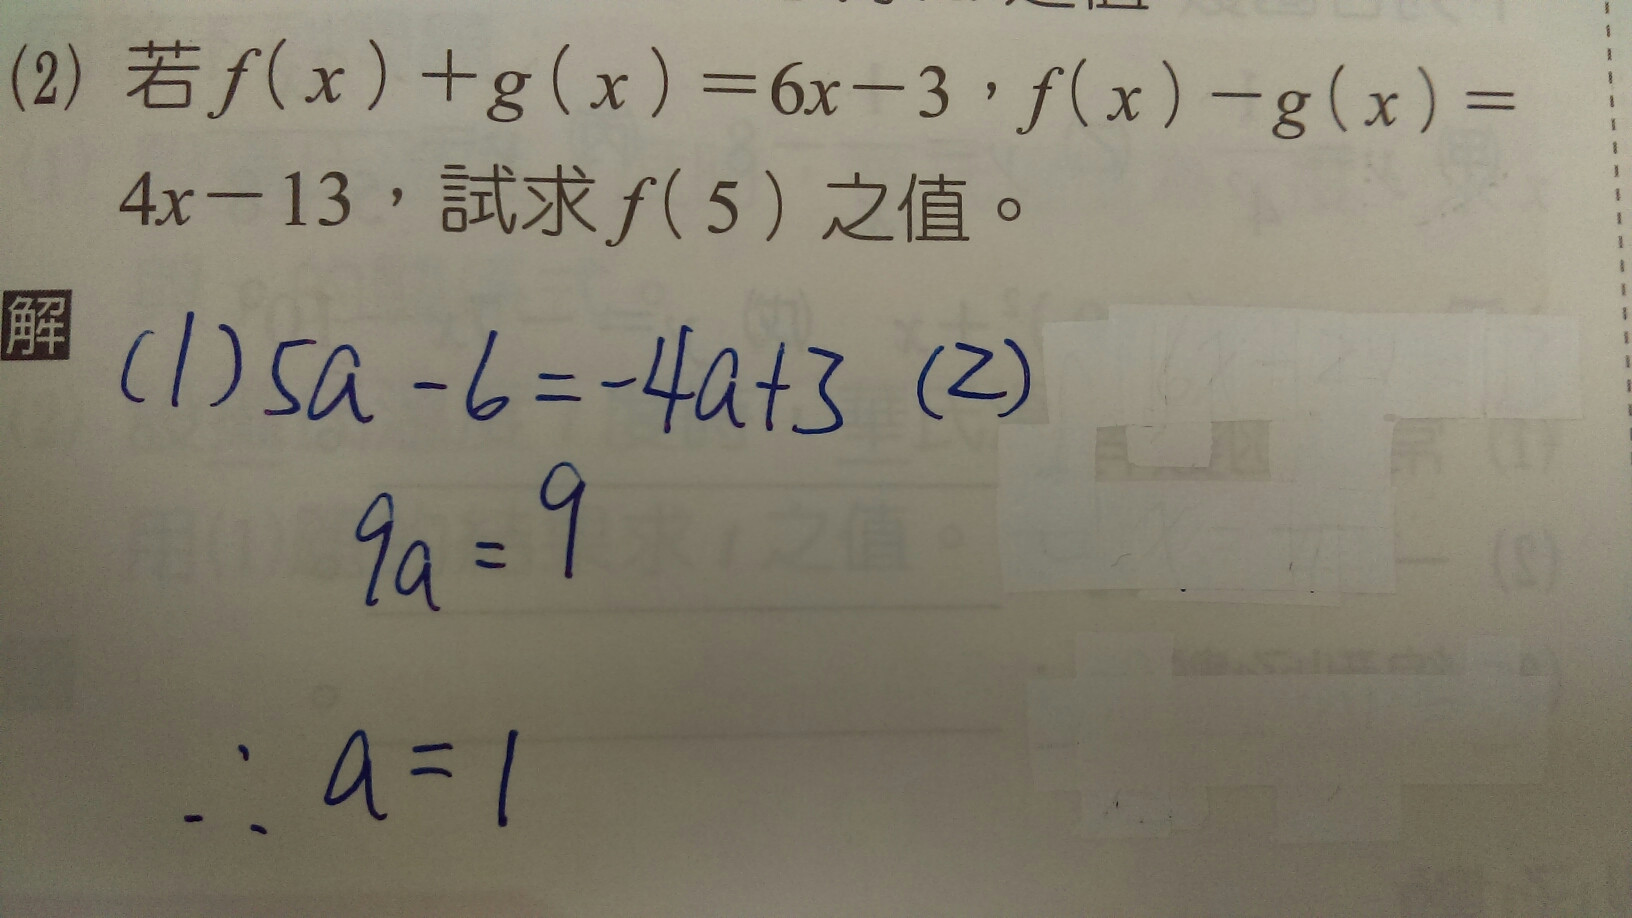 (2) 若f(x)+g(x)=6x-3,f(x)-g(x)=
4x-13,試求f(5)之值。
解
(1) 5a-6=-4a+3 (2)
9a=9
∴ a=1